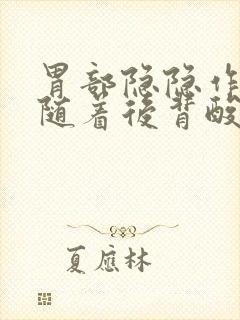 胃部隐隐作
随着後背酸
夏應林